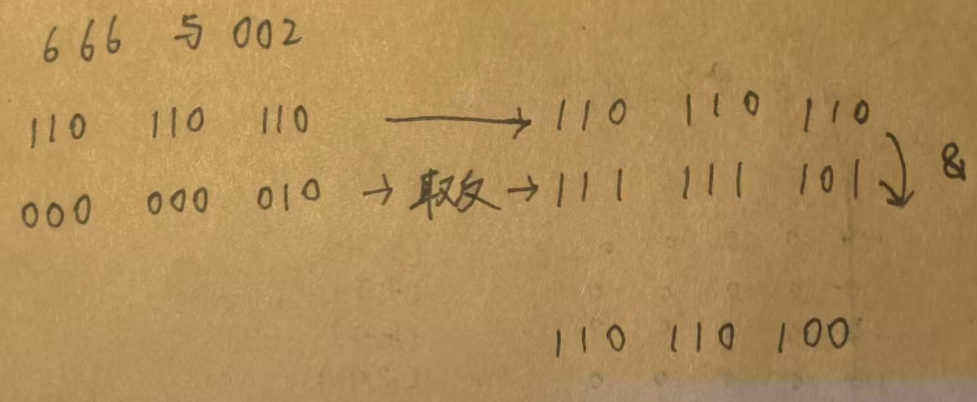 666 与 002
110 110 110 → 110 110 110
000 000 010 → 取反 → 111 111 101 &
110 110 100